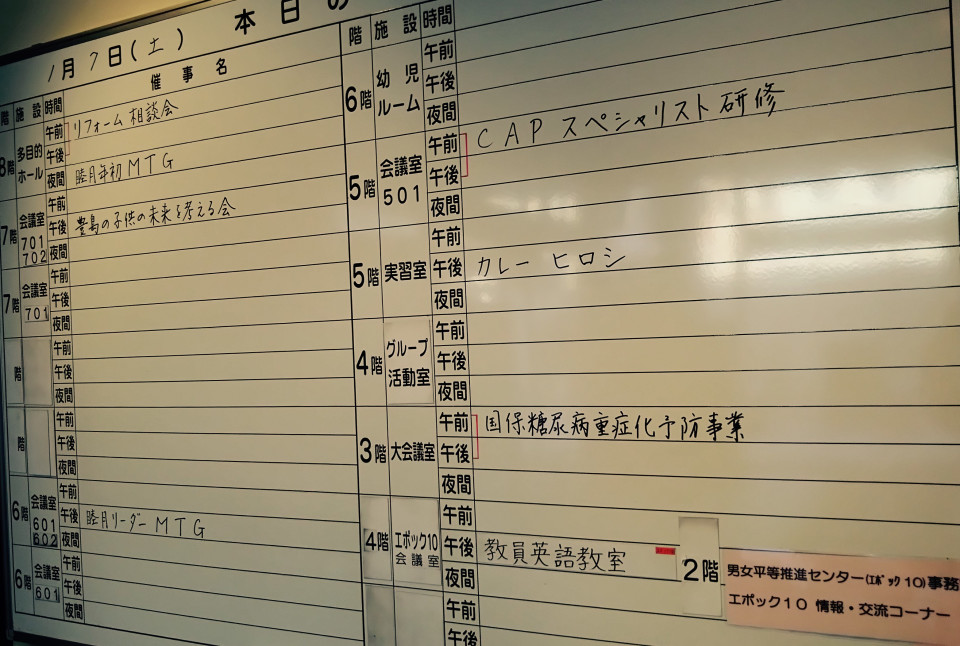 1月7日(土) 本日の
階 施設 時間 催事名
8階 多目的ホール 午前 リフォーム相談会
午後
夜間 睦月年初MTG
7階 会議室 701 702 午前
午後 豊島の子供の未来を考える会
夜間
7階 会議室 701 午前
午後
夜間
階 午前
午後
夜間
階 午前
午後
夜間
6階 会議室 601 602 午前
午後 睦月リーダーMTG
夜間
6階 会議室 601 午前
午後
夜間
階 施設 時間
6階 幼児ルーム 午前
午後
夜間
5階 会議室 501 午前 CAPスペシャリスト研修
午後
夜間
5階 実習室 午前
午後 カレー ヒロシ
夜間
4階 グループ活動室 午前
午後
夜間
3階 大会議室 午前 国保糖尿病重症化予防事業
午後
夜間
4階 エポック10会議室 午前
午後 教員英語教室
夜間
午前
午後
2階 男女平等推進センター(エポック10)事務
エポック10 情報・交流コーナー